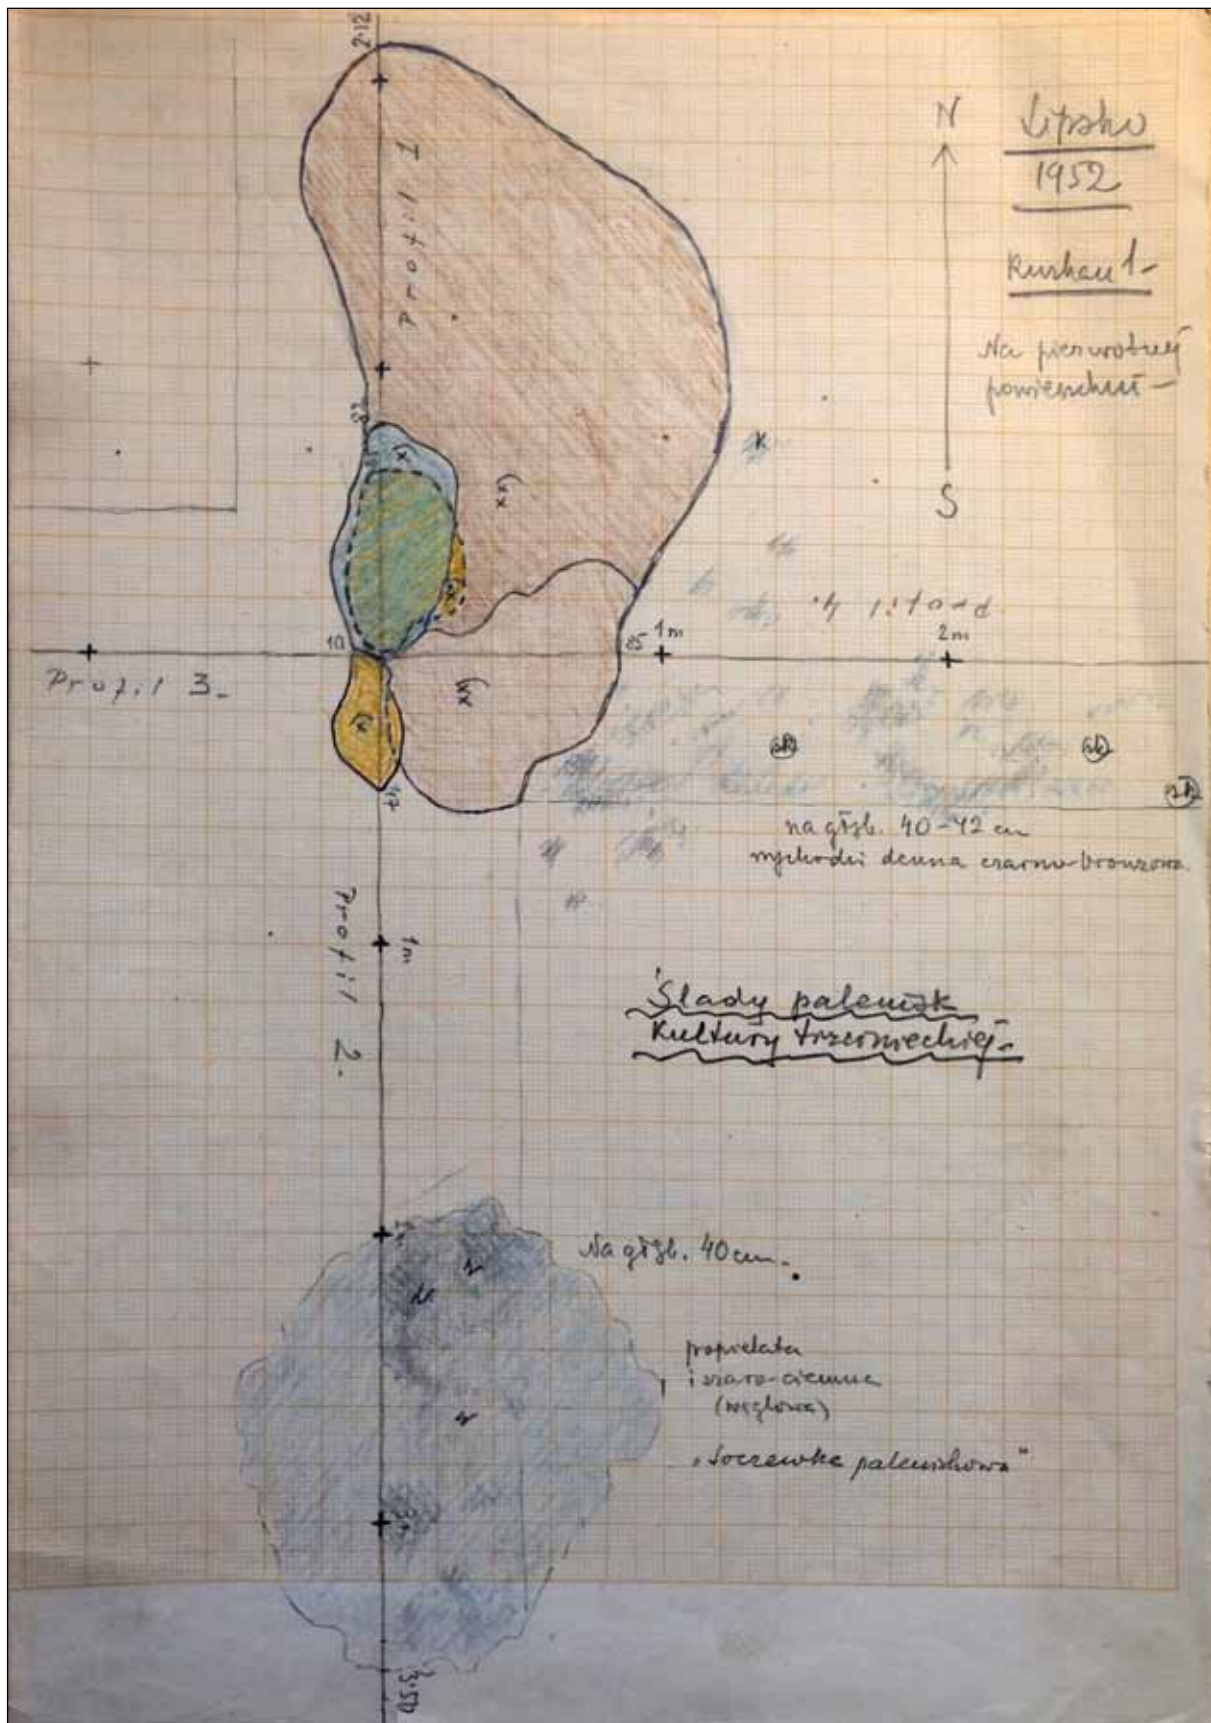 2.12
N
Lipsko
1952
Profil 1
Kurhan 1-
Na pierwotnej
powierzchni-
S
K
x
xx
x
Profil 4.
10
85
1m
2m
Profil 3.
xx
x
sk
sk
sk
47
na głęb. 40-42 cm
wychodzi czarno-bronzowa.
Profil 2.
1m
Ślady palenisk
Kultury trzcinieckiej-
Na głęb. 40 cm-
popielata
i szaro-ciemna
(węglowa)
"Soczewka paleniskowa"
3.50